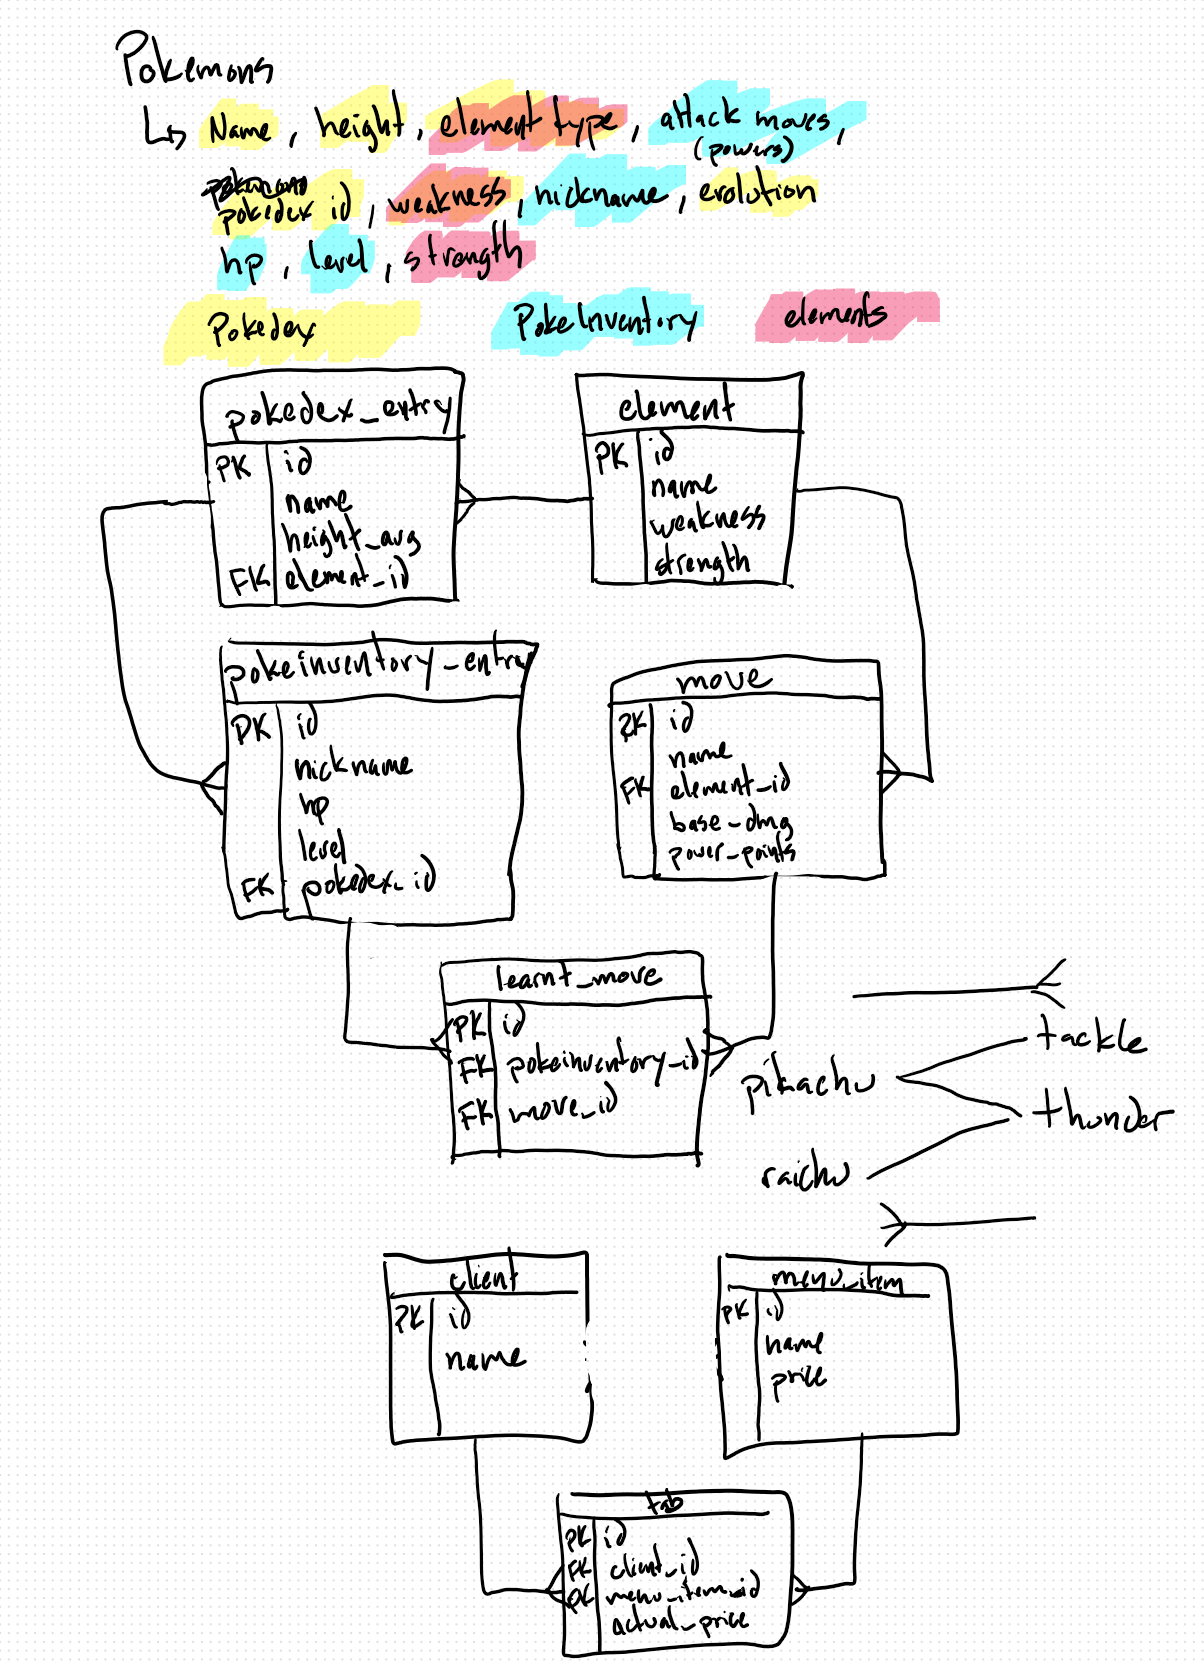 Pokemons
↳ Name, height, element type, attack moves,
(powers)
pokedex id, weakness, nickname, evolution
hp, level, strength
Pokedex PokeInventory elements
pokedex_entry
PK id
name
height_avg
FK element_id
element
PK id
name
weakness
strength
pokeinventory_entry
PK id
nickname
hp
level
FK pokedex_id
move
PK id
name
FK element_id
base_dmg
power_points
learnt_move
PK id
FK pokeinventory_id
FK move_id
tackle
pikachu
thunder
raichu
client
PK id
name
menu_item
PK id
name
price
tab
PK id
FK client_id
FK menu_item_id
actual_price